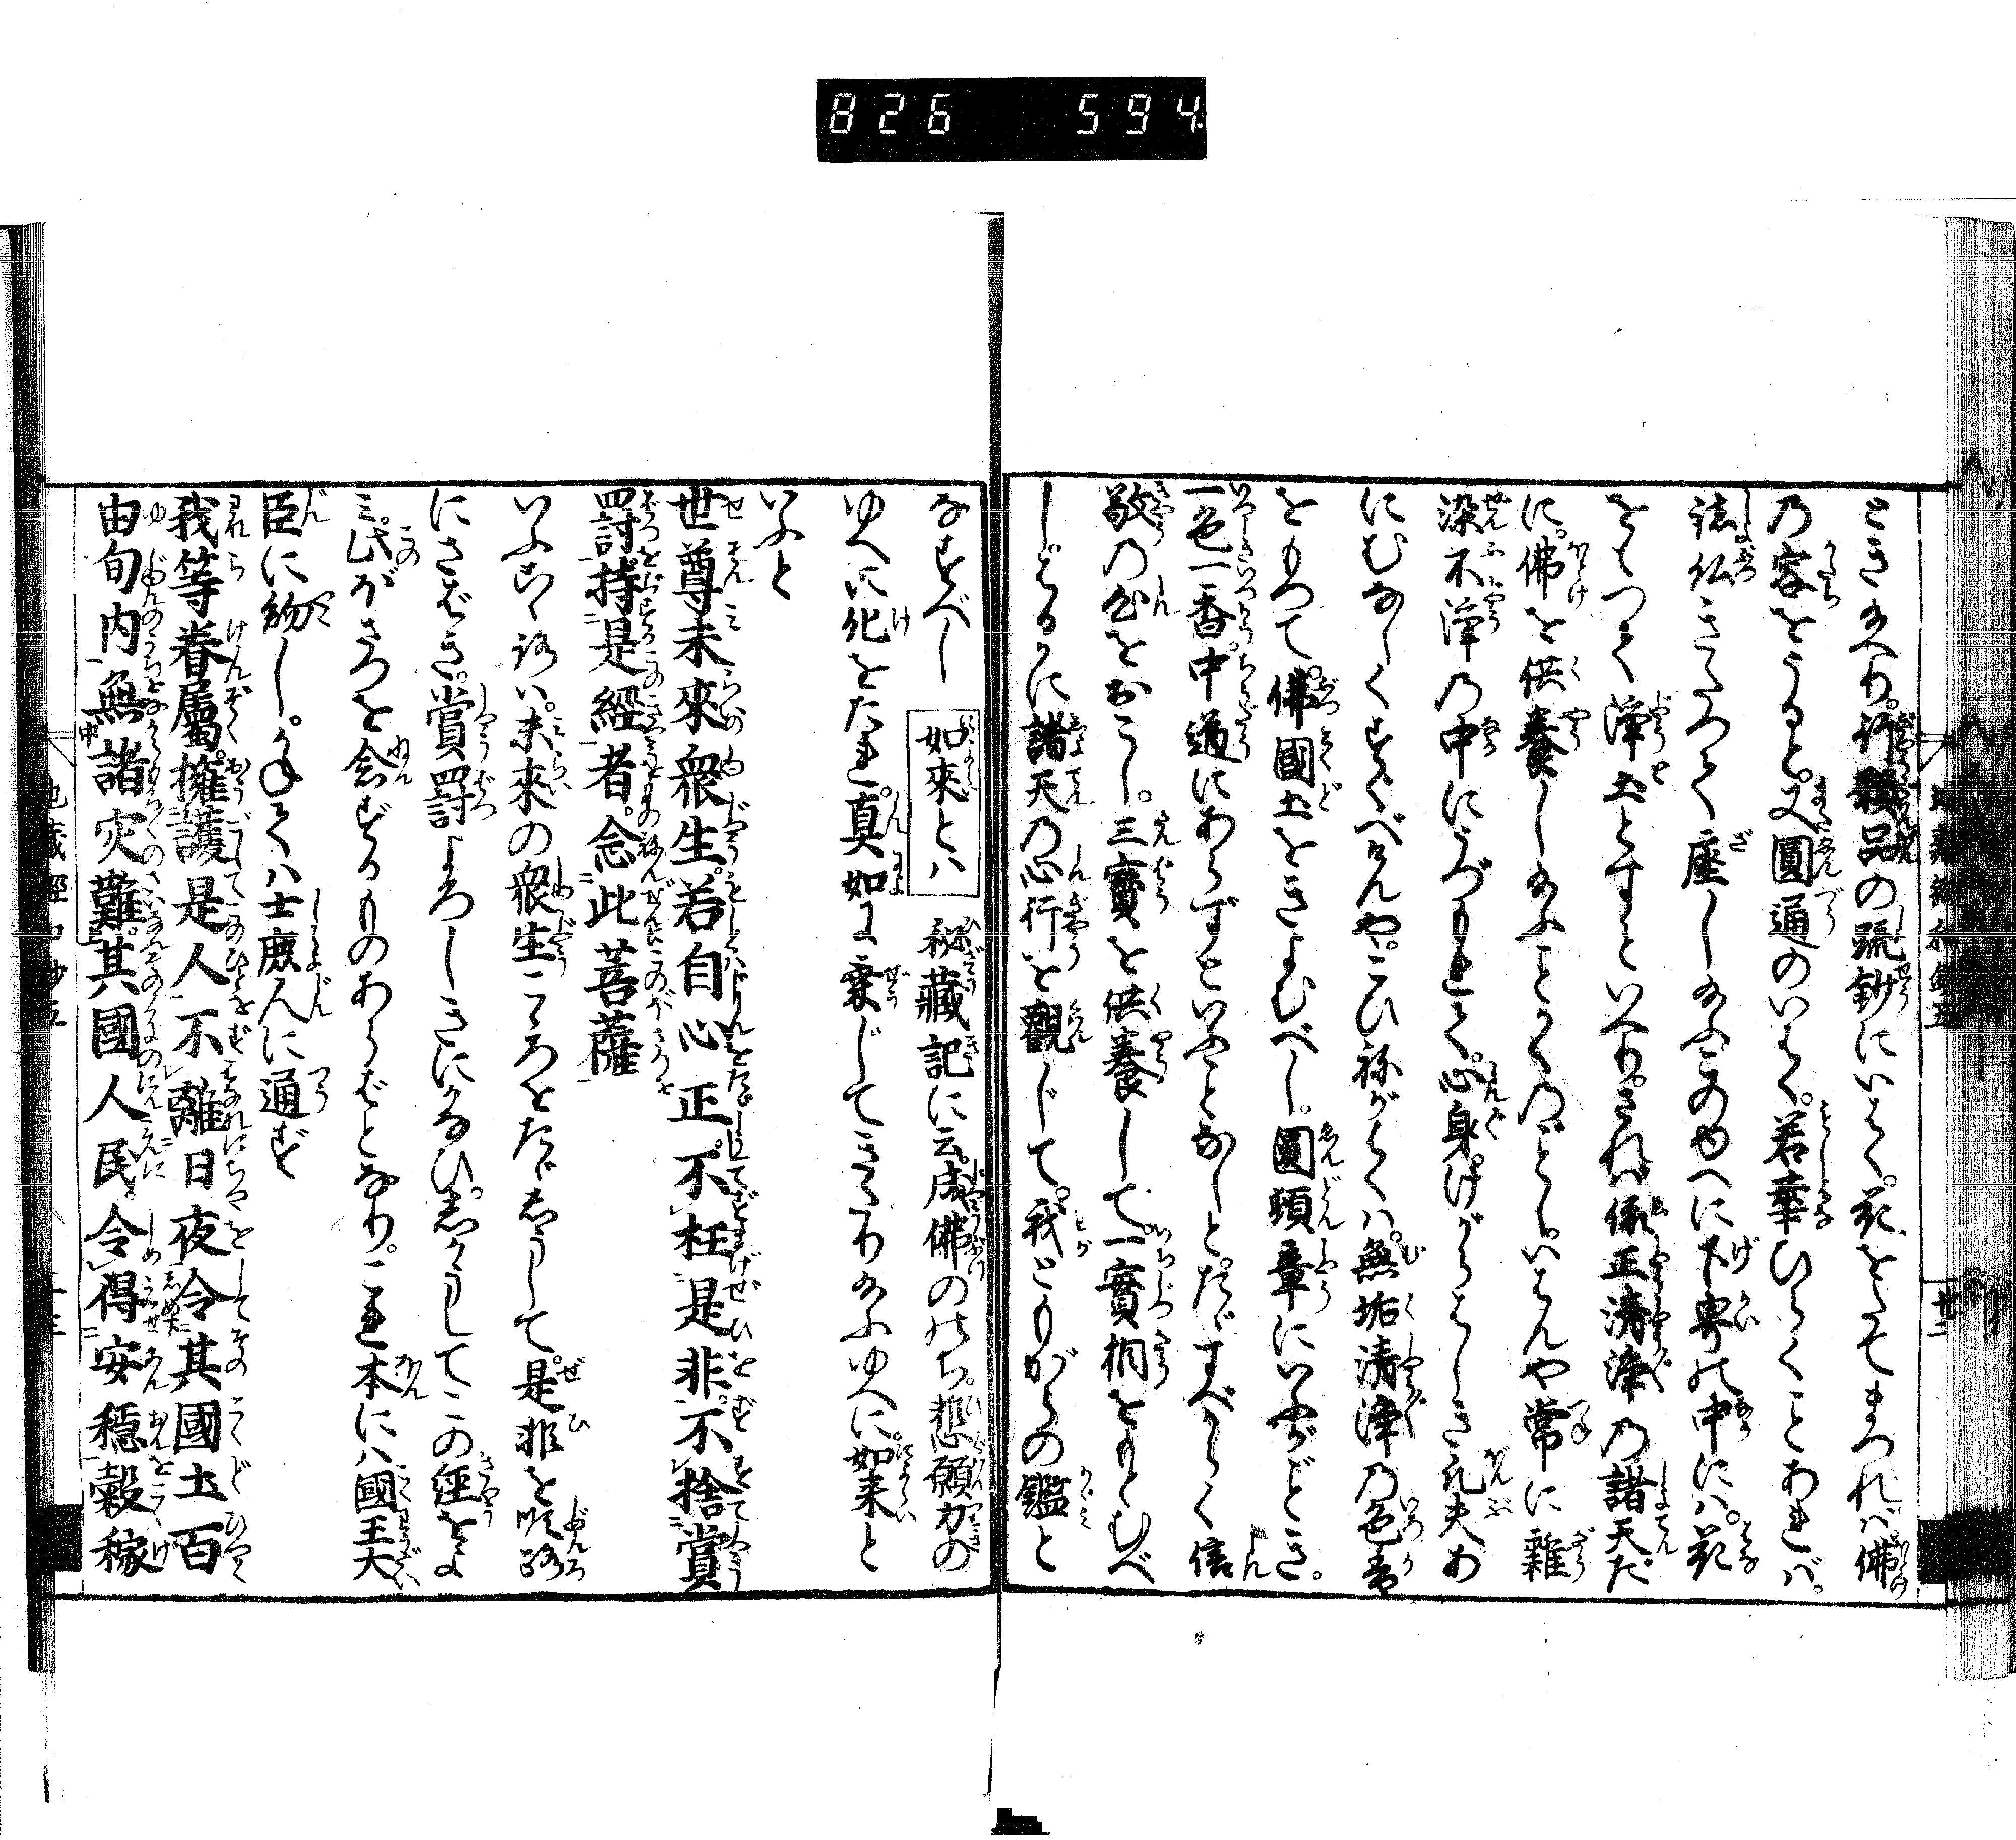 826 594
ときたまへり。行願品の疏鈔にいはく。花をたてまつれバ佛
乃容をうると。又圓通のいはく。若華ひらくことあれバ。
諸仏きたつて座し給ふこのゆへに下界の中にハ。花
をもつて浄土とすといへり。されバ依正清浄乃諸天だ
に。佛を供養し給ふことかくのごとし。いはんや常に雜
染不浄乃中にうづもれて。心身けがらはしき凡夫あ
にむなしくすくべけんや。こひねがはくハ。無垢清浄乃色香
をもつて。佛國土をきよむべし。圓頓章にいふがごとき。
一色一香。中道にあらずといふことなしと。たゞすべからく信
敬乃心をおこし。三寶を供養して。一實相をもとむべ
し。とをかに諸天乃心行を觀じて。我ともがらの鑑と
なすべし 如來とハ 秘藏記に云。成佛ののち。悲願力の
ゆへに化をたれ。真如に乗じてきたり給ふゆへに。如来と
いふと
世尊未來衆生。若自心正。不枉是非。不捨賞
罸。持是經者。念此菩薩
いふこゝろハ。未來の衆生こゝろをたゞしうして。是非を順路
にさばき。賞罸よろしきにかなひ。しかうしてこの經をよ
ミ。此ぼさつを念ずるものあらばとなり。これ本にハ國王大
臣に約し。かねてハ士庶人に通ず
我等眷屬。擁護是人不離日夜令其國土百
由旬内無諸灾難。其國人民令得安穩穀稼